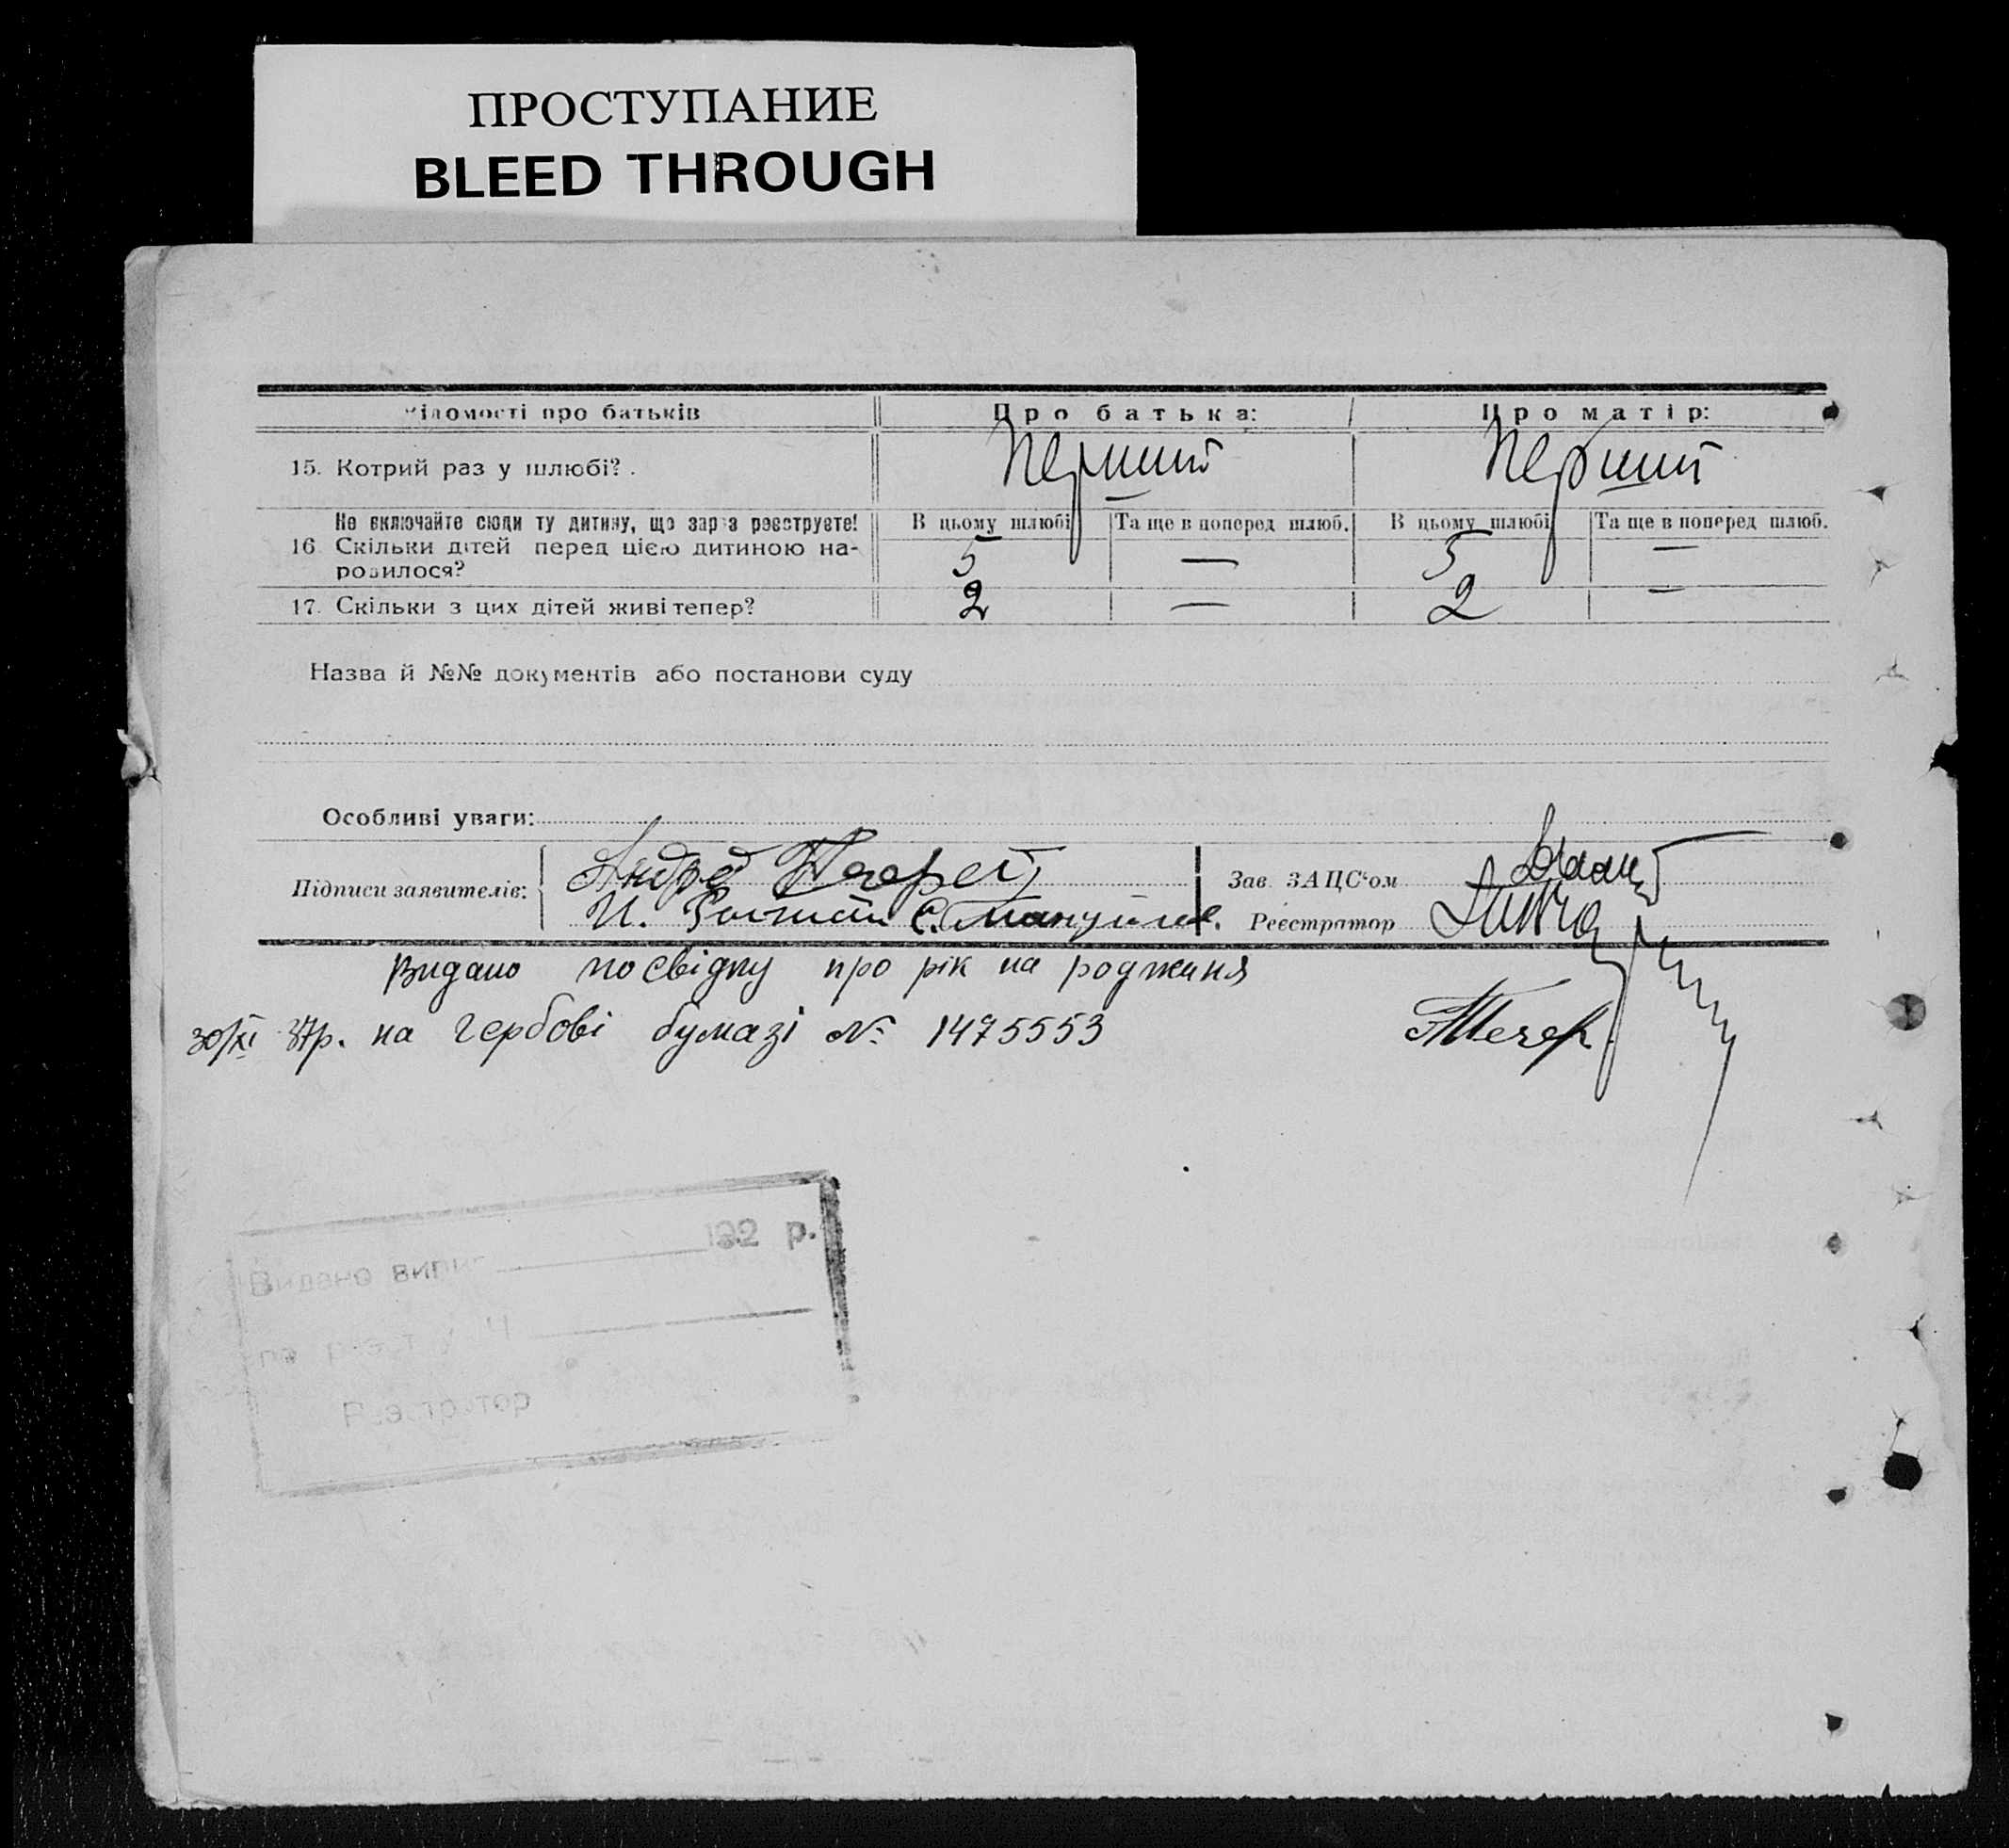 ПРОСТУПАНИЕ
BLEED THROUGH
ідомості про батьків Про батька: Про матір:
15. Котрий раз у шлюбі? . Перший Перший
Не включайте сюди ту дитину, що зараз реєструєте! В цьому шлюбі Та ще в поперед шлюб. В цьому шлюбі Та ще в поперед шлюб.
16 Скільки дітей перед цією дитиною на- 5 — 5 —
родилося?
17. Скільки з цих дітей живі тепер? 2 — 2 —
Назва й №№ документів або постанови суду
Особливі уваги:
Підписи заявителів: Андрей Зав ЗАЦС'ом
И. Реєстратор
Видано посвідку про рік народження
30/XI 37р. на гербові бумазі № 1475553
192 р.
Видано випис
по реєст
Реэстратор